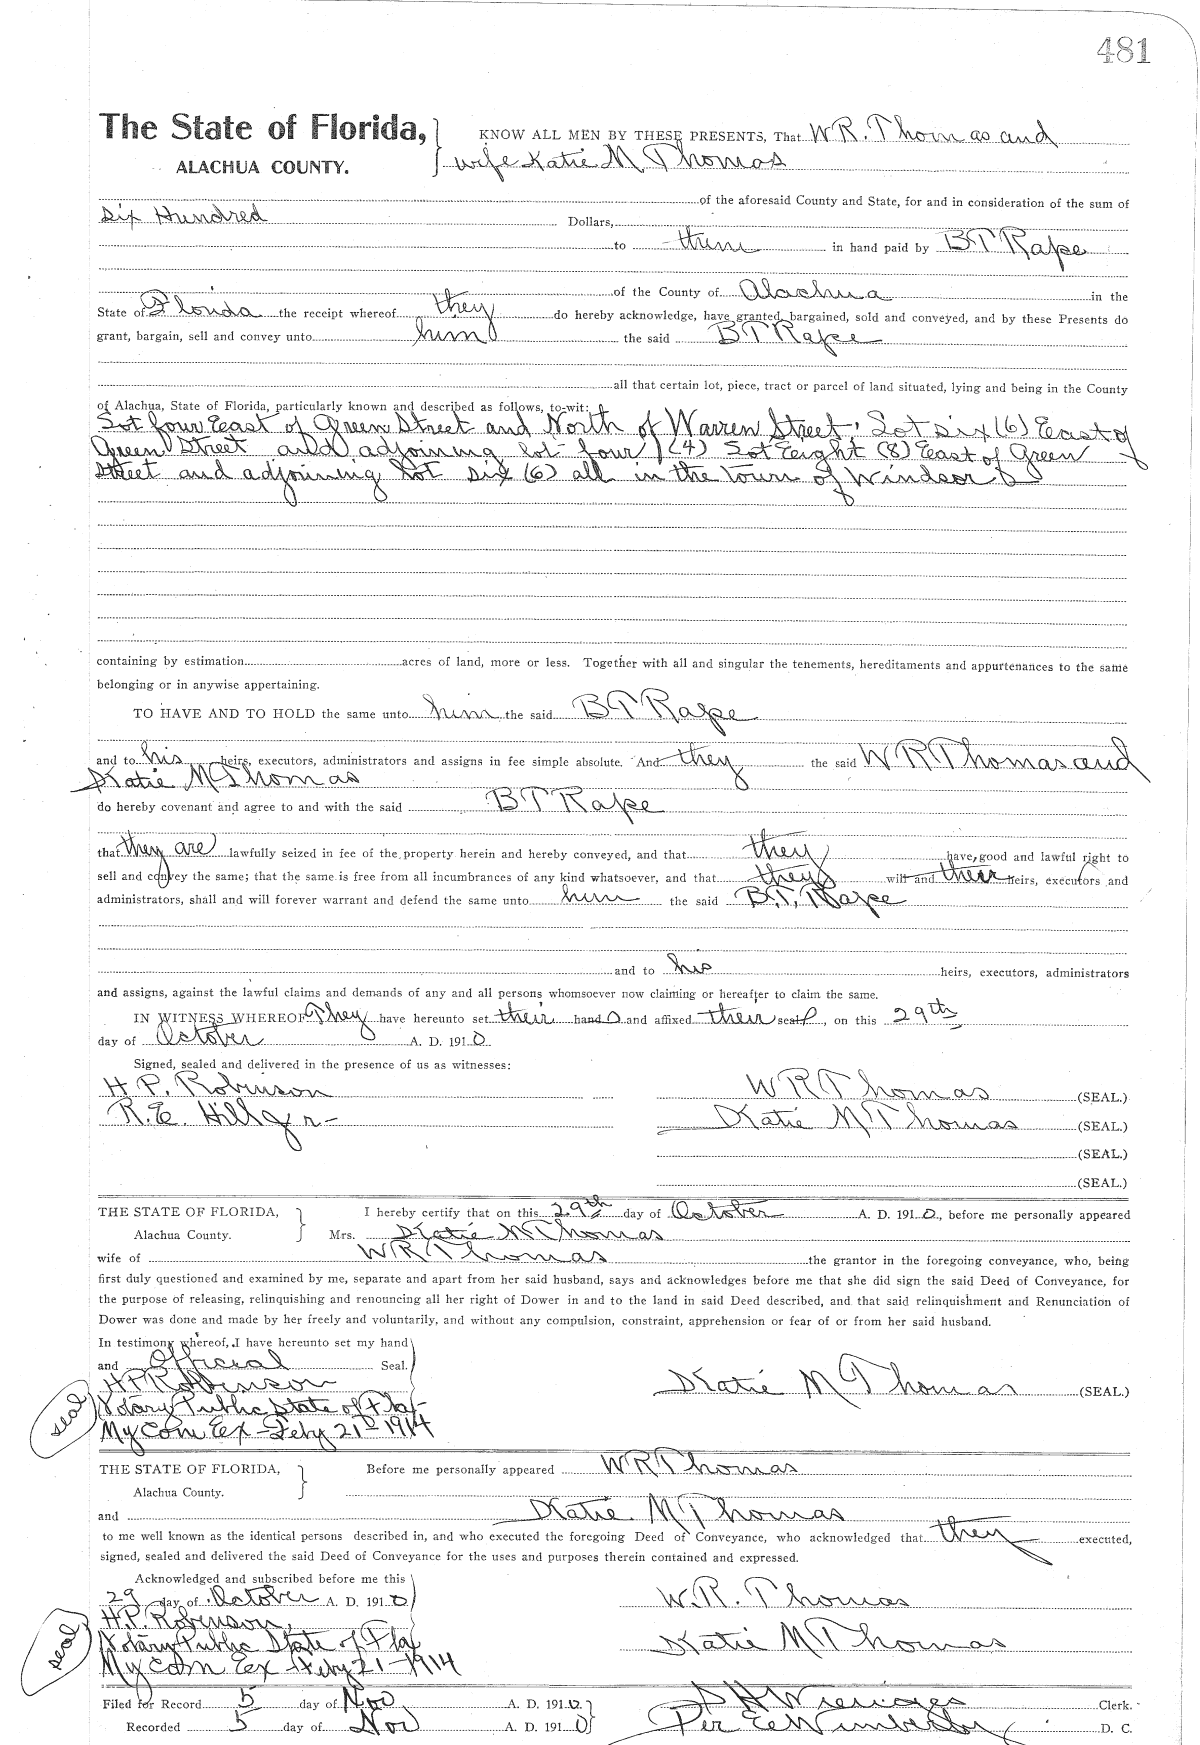 481
The State of Florida, KNOW ALL MEN BY THESE PRESENTS, That W R. Thomas and
ALACHUA COUNTY. wife Katie M Thomas
of the aforesaid County and State, for and in consideration of the sum of
Six Hundred Dollars,
to them in hand paid by B T Rape
of the County of Alachua in the
State of Florida the receipt whereof they do hereby acknowledge, have granted, bargained, sold and conveyed, and by these Presents do
grant, bargain, sell and convey unto him the said B T Rape
all that certain lot, piece, tract or parcel of land situated, lying and being in the County
of Alachua, State of Florida, particularly known and described as follows, to-wit:
Lot four East of Green Street and North of Warren Street, Lot six (6) East of
Green Street and adjoining lot four (4) Lot Eight (8) East of Green
Street and adjoining Lot six (6) all in the town of Windsor
containing by estimation acres of land, more or less. Together with all and singular the tenements, hereditaments and appurtenances to the same
belonging or in anywise appertaining.
TO HAVE AND TO HOLD the same unto him the said B T Rape
and to his heirs, executors, administrators and assigns in fee simple absolute. And they the said W R Thomas and
Katie M Thomas
do hereby covenant and agree to and with the said B T Rape
that they are lawfully seized in fee of the property herein and hereby conveyed, and that they have good and lawful right to
sell and convey the same; that the same is free from all incumbrances of any kind whatsoever, and that they will and their heirs, executors and
administrators, shall and will forever warrant and defend the same unto him the said B.T. Rape
and to his heirs, executors, administrators
and assigns, against the lawful claims and demands of any and all persons whomsoever now claiming or hereafter to claim the same.
IN WITNESS WHEREOF They have hereunto set their hand s and affixed their seal, on this 29th
day of October A. D. 1910.
Signed, sealed and delivered in the presence of us as witnesses:
H. P. Robinson W R Thomas (SEAL.)
R. E. Hill Katie M Thomas (SEAL.)
(SEAL.)
(SEAL.)
THE STATE OF FLORIDA, I hereby certify that on this 29th day of October A. D. 1910, before me personally appeared
Alachua County. Mrs. Katie M Thomas
wife of W R Thomas the grantor in the foregoing conveyance, who, being
first duly questioned and examined by me, separate and apart from her said husband, says and acknowledges before me that she did sign the said Deed of Conveyance, for
the purpose of releasing, relinquishing and renouncing all her right of Dower in and to the land in said Deed described, and that said relinquishment and Renunciation of
Dower was done and made by her freely and voluntarily, and without any compulsion, constraint, apprehension or fear of or from her said husband.
In testimony whereof, I have hereunto set my hand
and Official Seal.
H P Robinson Katie M Thomas (SEAL.)
seal Notary Public State of Fla
My Com Ex - Feby 21st 1914
THE STATE OF FLORIDA, Before me personally appeared W R Thomas
Alachua County.
and Katie M Thomas
to me well known as the identical persons described in, and who executed the foregoing Deed of Conveyance, who acknowledged that they executed,
signed, sealed and delivered the said Deed of Conveyance for the uses and purposes therein contained and expressed.
Acknowledged and subscribed before me this
29 day of October A. D. 1910 W. R. Thomas
H. P. Robinson,
seal Notary Public State of Fla Katie M Thomas
My Com Ex Feby 21-1914
Filed for Record 5 day of Nov A. D. 1910. Clerk.
Recorded 5 day of Nov A. D. 1910 Per D. C.